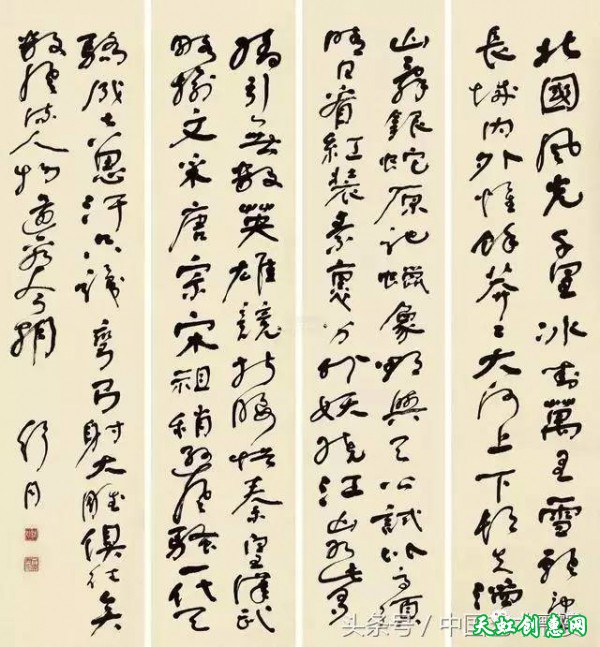 北國風光千里冰封萬里雪飄望
長城内外惟餘莽〻大河上下頓失滔〻
山舞銀蛇原馳蠟象欲與天公試比高須
晴日看紅裝素裹分外妖嬈江山如此多
嬌引無數英雄競折腰惜秦皇漢武
略輸文采唐宗宋祖稍遜風騷一代天
驕成吉思汗只識彎弓射大雕俱往矣
數風流人物還看今朝
舒同
头条号 / 中国
天虹创惠网